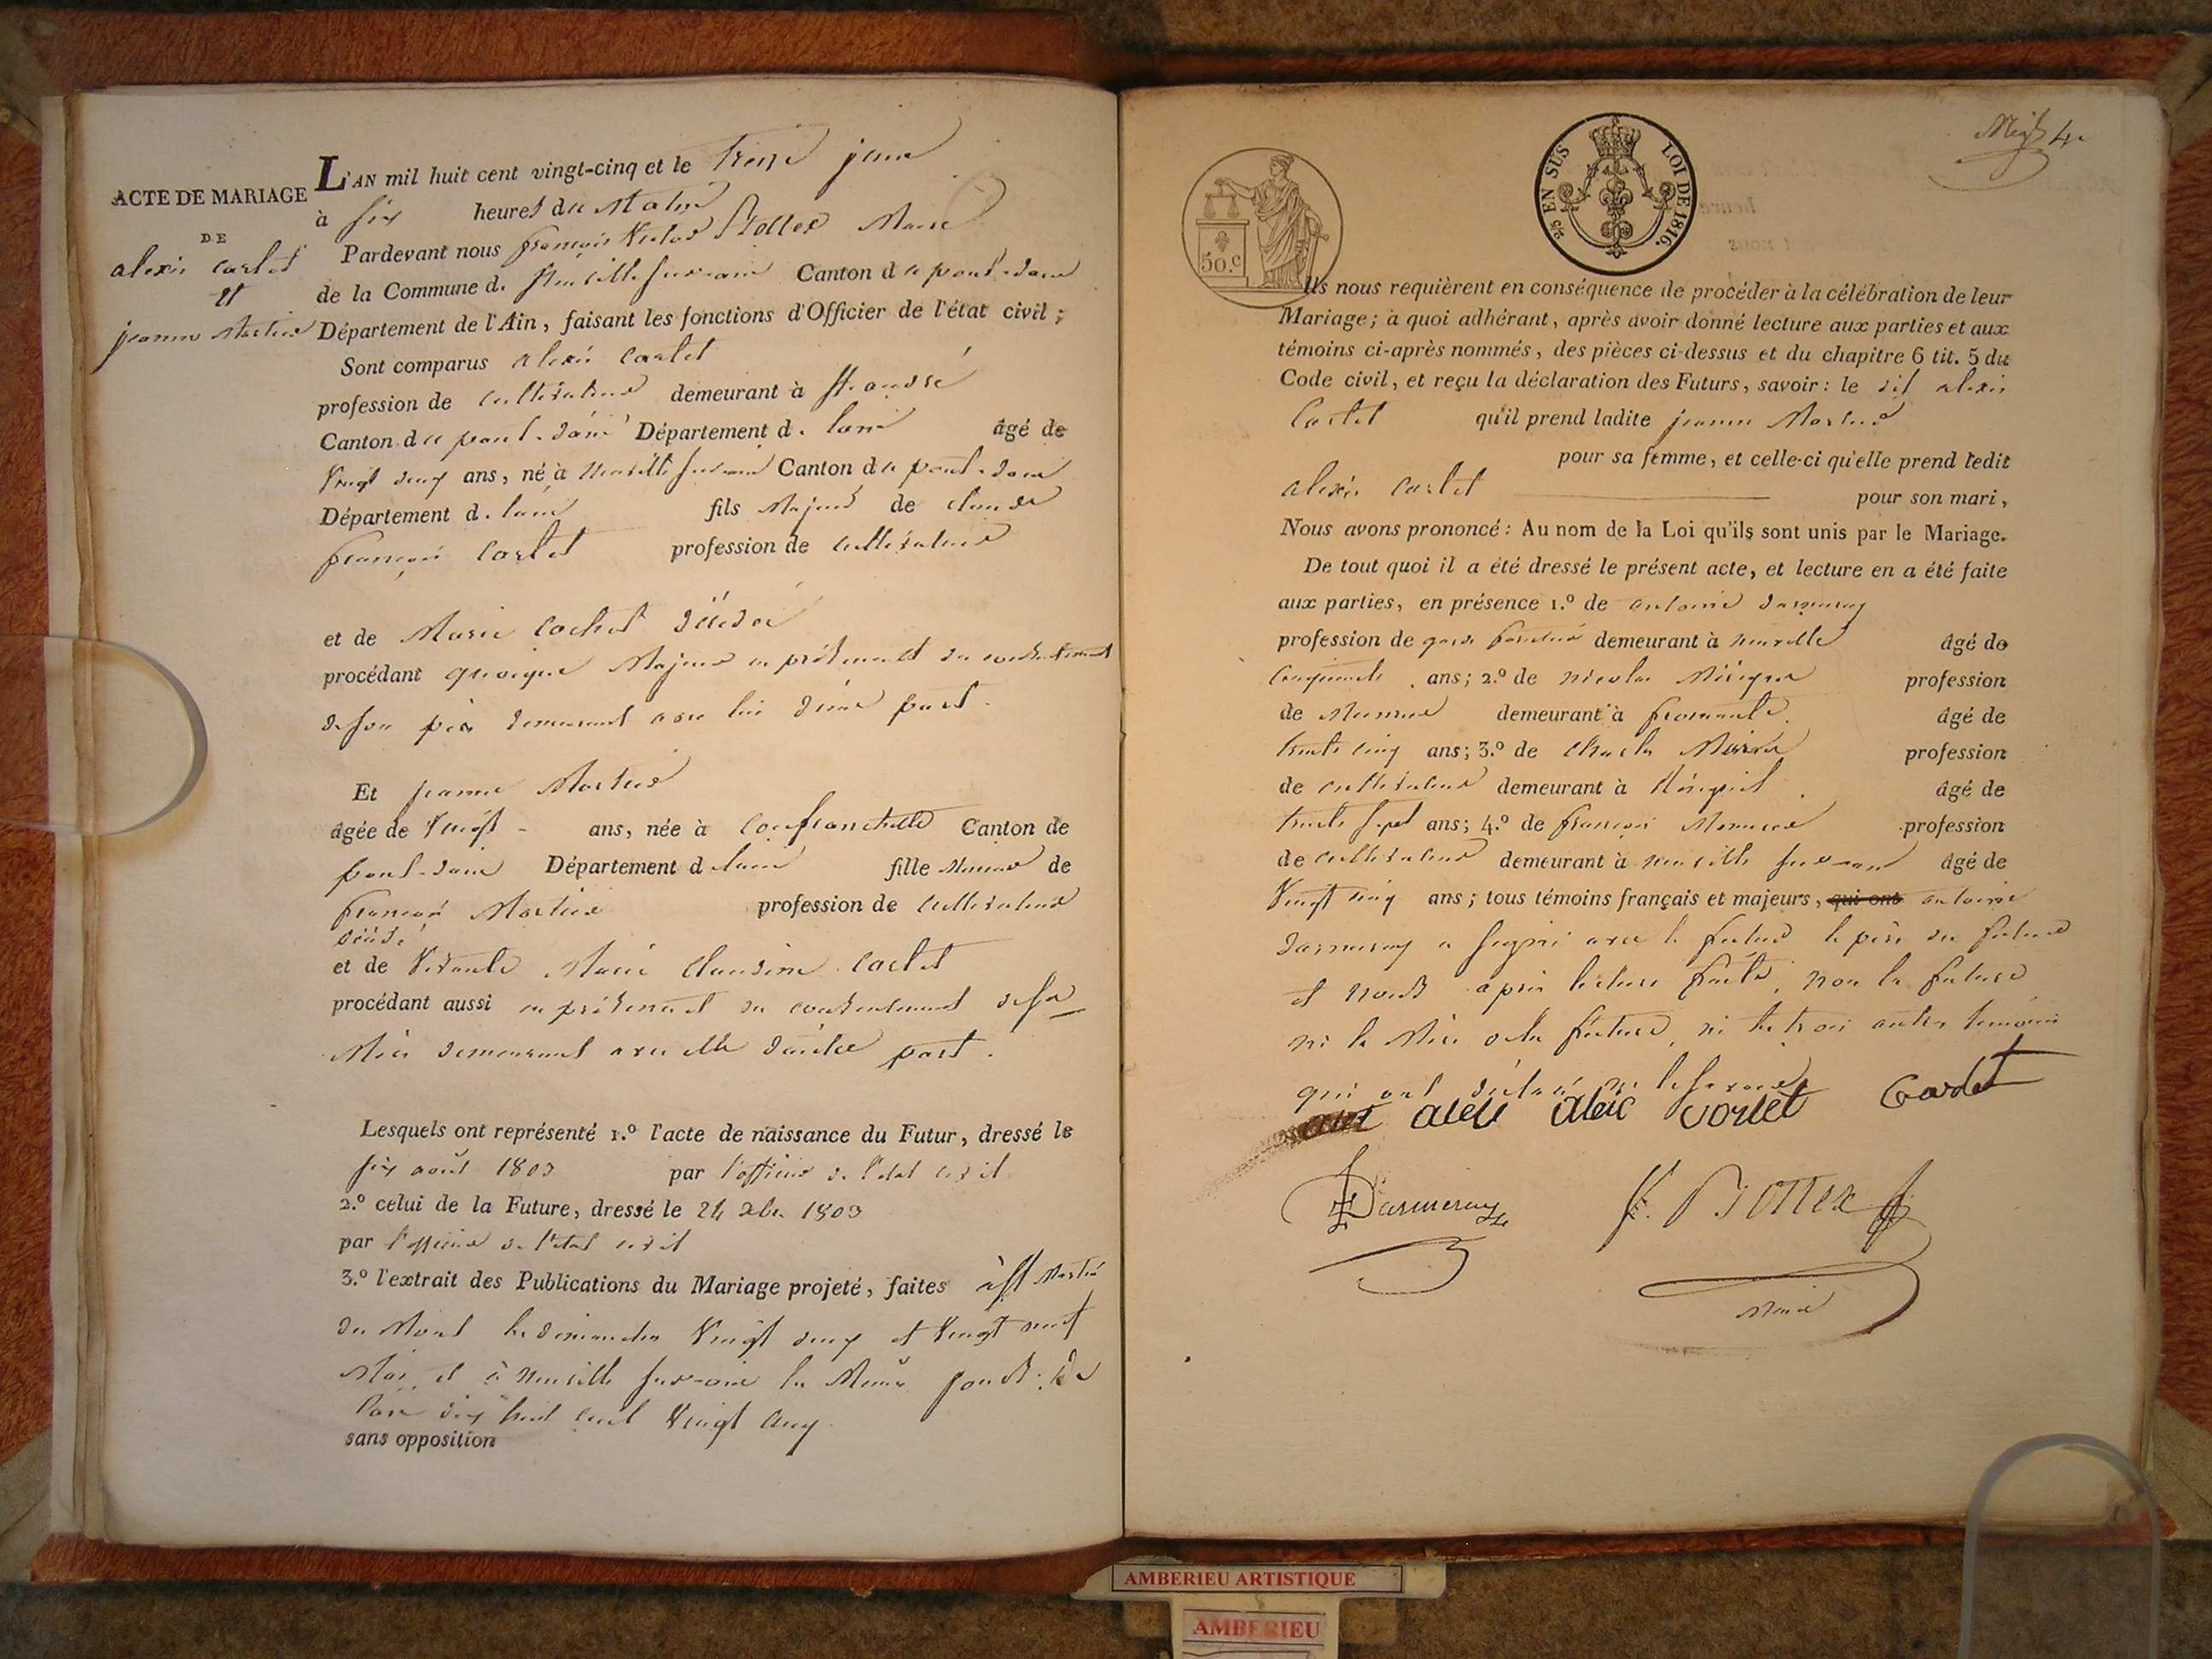 ACTE DE MARIAGE
DE
alexis carlet
et
jeanne Martin
L'AN mil huit cent vingt-cinq et le treize juin
à six heures du Matin
Pardevant nous françois Victor Bottex Maire
de la Commune d. Neuville sur ain Canton du pont-dain
Département de l'Ain, faisant les fonctions d'Officier de l'état civil ;
Sont comparus alexis carlet
profession de cultivateur demeurant à St. andré
Canton du pont-dain Département d. lain âgé de
Vingt deux ans, né à Neuville sur ain Canton du pont-dain
Département d. lain fils Majeur de claude
françois Carlet profession de cultivateur
et de Marie Cochet décédée
procédant quoique Majeur en présence et du consentement
de son père demeurant avec lui d'une part.
Et jeanne Martin
âgée de Vingt ans, née à Confranchette Canton de
pont-dain Département d lain fille Mineure de
françois Martin profession de cultivateur
décédé
et de Vivante Marie Claudine Carlet
procédant aussi en présence et du consentement de sa
Mère demeurant avec elle d'autre part.
Lesquels ont représenté 1.º l'acte de naissance du Futur, dressé le
six août 1803 par l'officier de l'état civil
2.º celui de la Future, dressé le 24 1803
par l'officier de l'état civil
3.º l'extrait des Publications du Mariage projeté, faites à St Martin
du Mont les dimanches Vingt deux et Vingt neuf
Mai et à Neuville sur-ain les Mêmes jours. de
l'an dix huit cent Vingt cinq
sans opposition
50.c
25 EN SUS LOI DE 1816.
Ils nous requièrent en conséquence de procéder à la célébration de leur
Mariage; à quoi adhérant, après avoir donné lecture aux parties et aux
témoins ci-après nommés, des pièces ci-dessus et du chapitre 6 tit. 5 du
Code civil, et reçu la déclaration des Futurs, savoir: le dit alexis
Carlet qu'il prend ladite jeanne Martin
pour sa femme, et celle-ci qu'elle prend ledit
alexis carlet pour son mari,
Nous avons prononcé: Au nom de la Loi qu'ils sont unis par le Mariage.
De tout quoi il a été dressé le présent acte, et lecture en a été faite
aux parties, en présence 1.º de antoine darmeray
profession de garde forestier demeurant à neuville âgé de
Cinquante ans; 2.º de nicolas profession
de Meunier demeurant à fromente âgé de
trente cinq ans; 3.º de Charles profession
de cultivateur demeurant à âgé de
trente sept ans; 4.º de françois profession
de cultivateur demeurant à neuville sur ain âgé de
Vingt cinq ans; tous témoins français et majeurs, qui ont antoine
darmeray a signé avec le futur le père du futur
et nous après lecture faite, non la future
ni la Mère de la future, ni les trois autres témoins
qui ont déclaré ne le savoir
alexi Alexi Corlet Cardet
Darmeray F. V. BOTTEX
Maire
AMBERIEU ARTISTIQUE
AMBERIEU